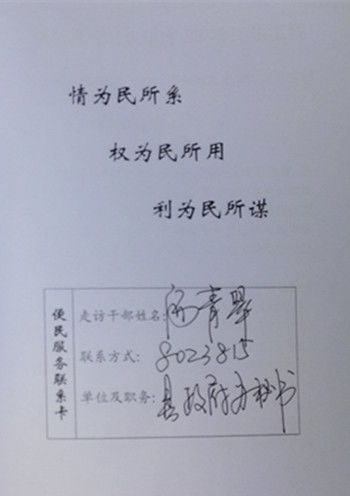 情为民所系
权为民所用
利为民所谋
便民服务联系卡
走访干部姓名:
联系方式: 8023815
单位及职务: 县政府办秘书